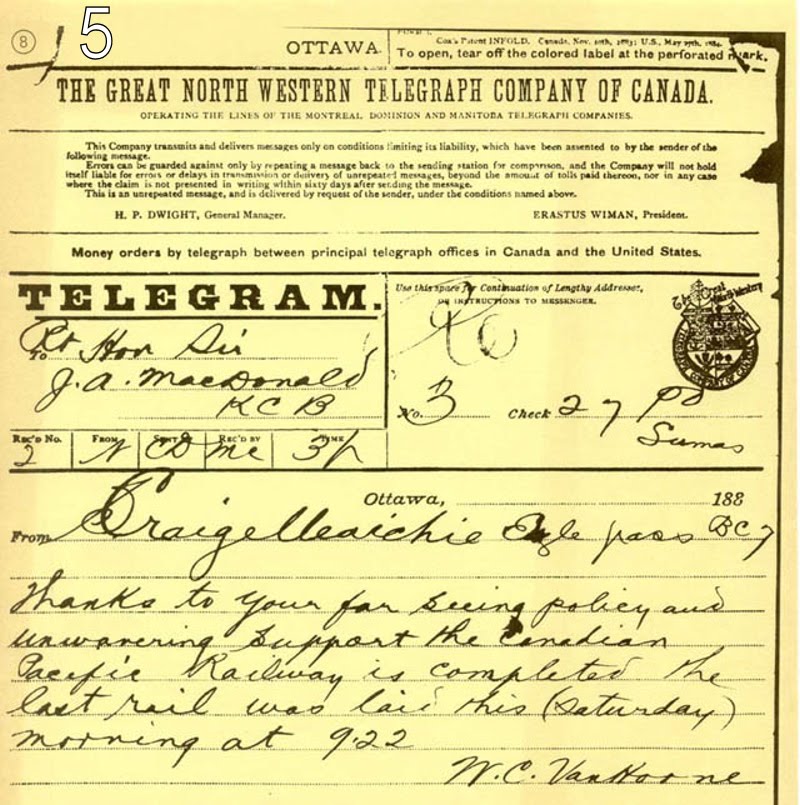 8
5
OTTAWA.
Cox's Patent INFOLD. Canada, Nov. 10th, 1883; U.S., May 27th, 1884.
To open, tear off the colored label at the perforated mark.
THE GREAT NORTH WESTERN TELEGRAPH COMPANY OF CANADA.
OPERATING THE LINES OF THE MONTREAL, DOMINION AND MANITOBA TELEGRAPH COMPANIES.
This Company transmits and delivers messages only on conditions limiting its liability, which have been assented to by the sender of the
following message.
Errors can be guarded against only by repeating a message back to the sending station for comparison, and the Company will not hold
itself liable for errors or delays in transmission or delivery of unrepeated messages, beyond the amount of tolls paid thereon, nor in any case
where the claim is not presented in writing within sixty days after sending the message.
This is an unrepeated message, and is delivered by request of the sender, under the conditions named above.
H. P. DWIGHT, General Manager. ERASTUS WIMAN, President.
Money orders by telegraph between principal telegraph offices in Canada and the United States.
TELEGRAM.
Use this space for Continuation of Lengthy Addresses,
OR INSTRUCTIONS TO MESSENGER.
The Great North Western
To Rt Hon Sir
J. A. MacDonald
K C B
No. 3 Check 27 Pd
Sumas
REC'D No. FROM SENT BY REC'D BY TIME
2 N CD Mc 3p
Ottawa, 188
From Craigelleaichie Eagle pass BC 7
Thanks to your far seeing policy and
unwavering support the Canadian
Pacific Railway is completed the
last rail was laid this (Saturday)
morning at 9.22
W. C. Van Horne